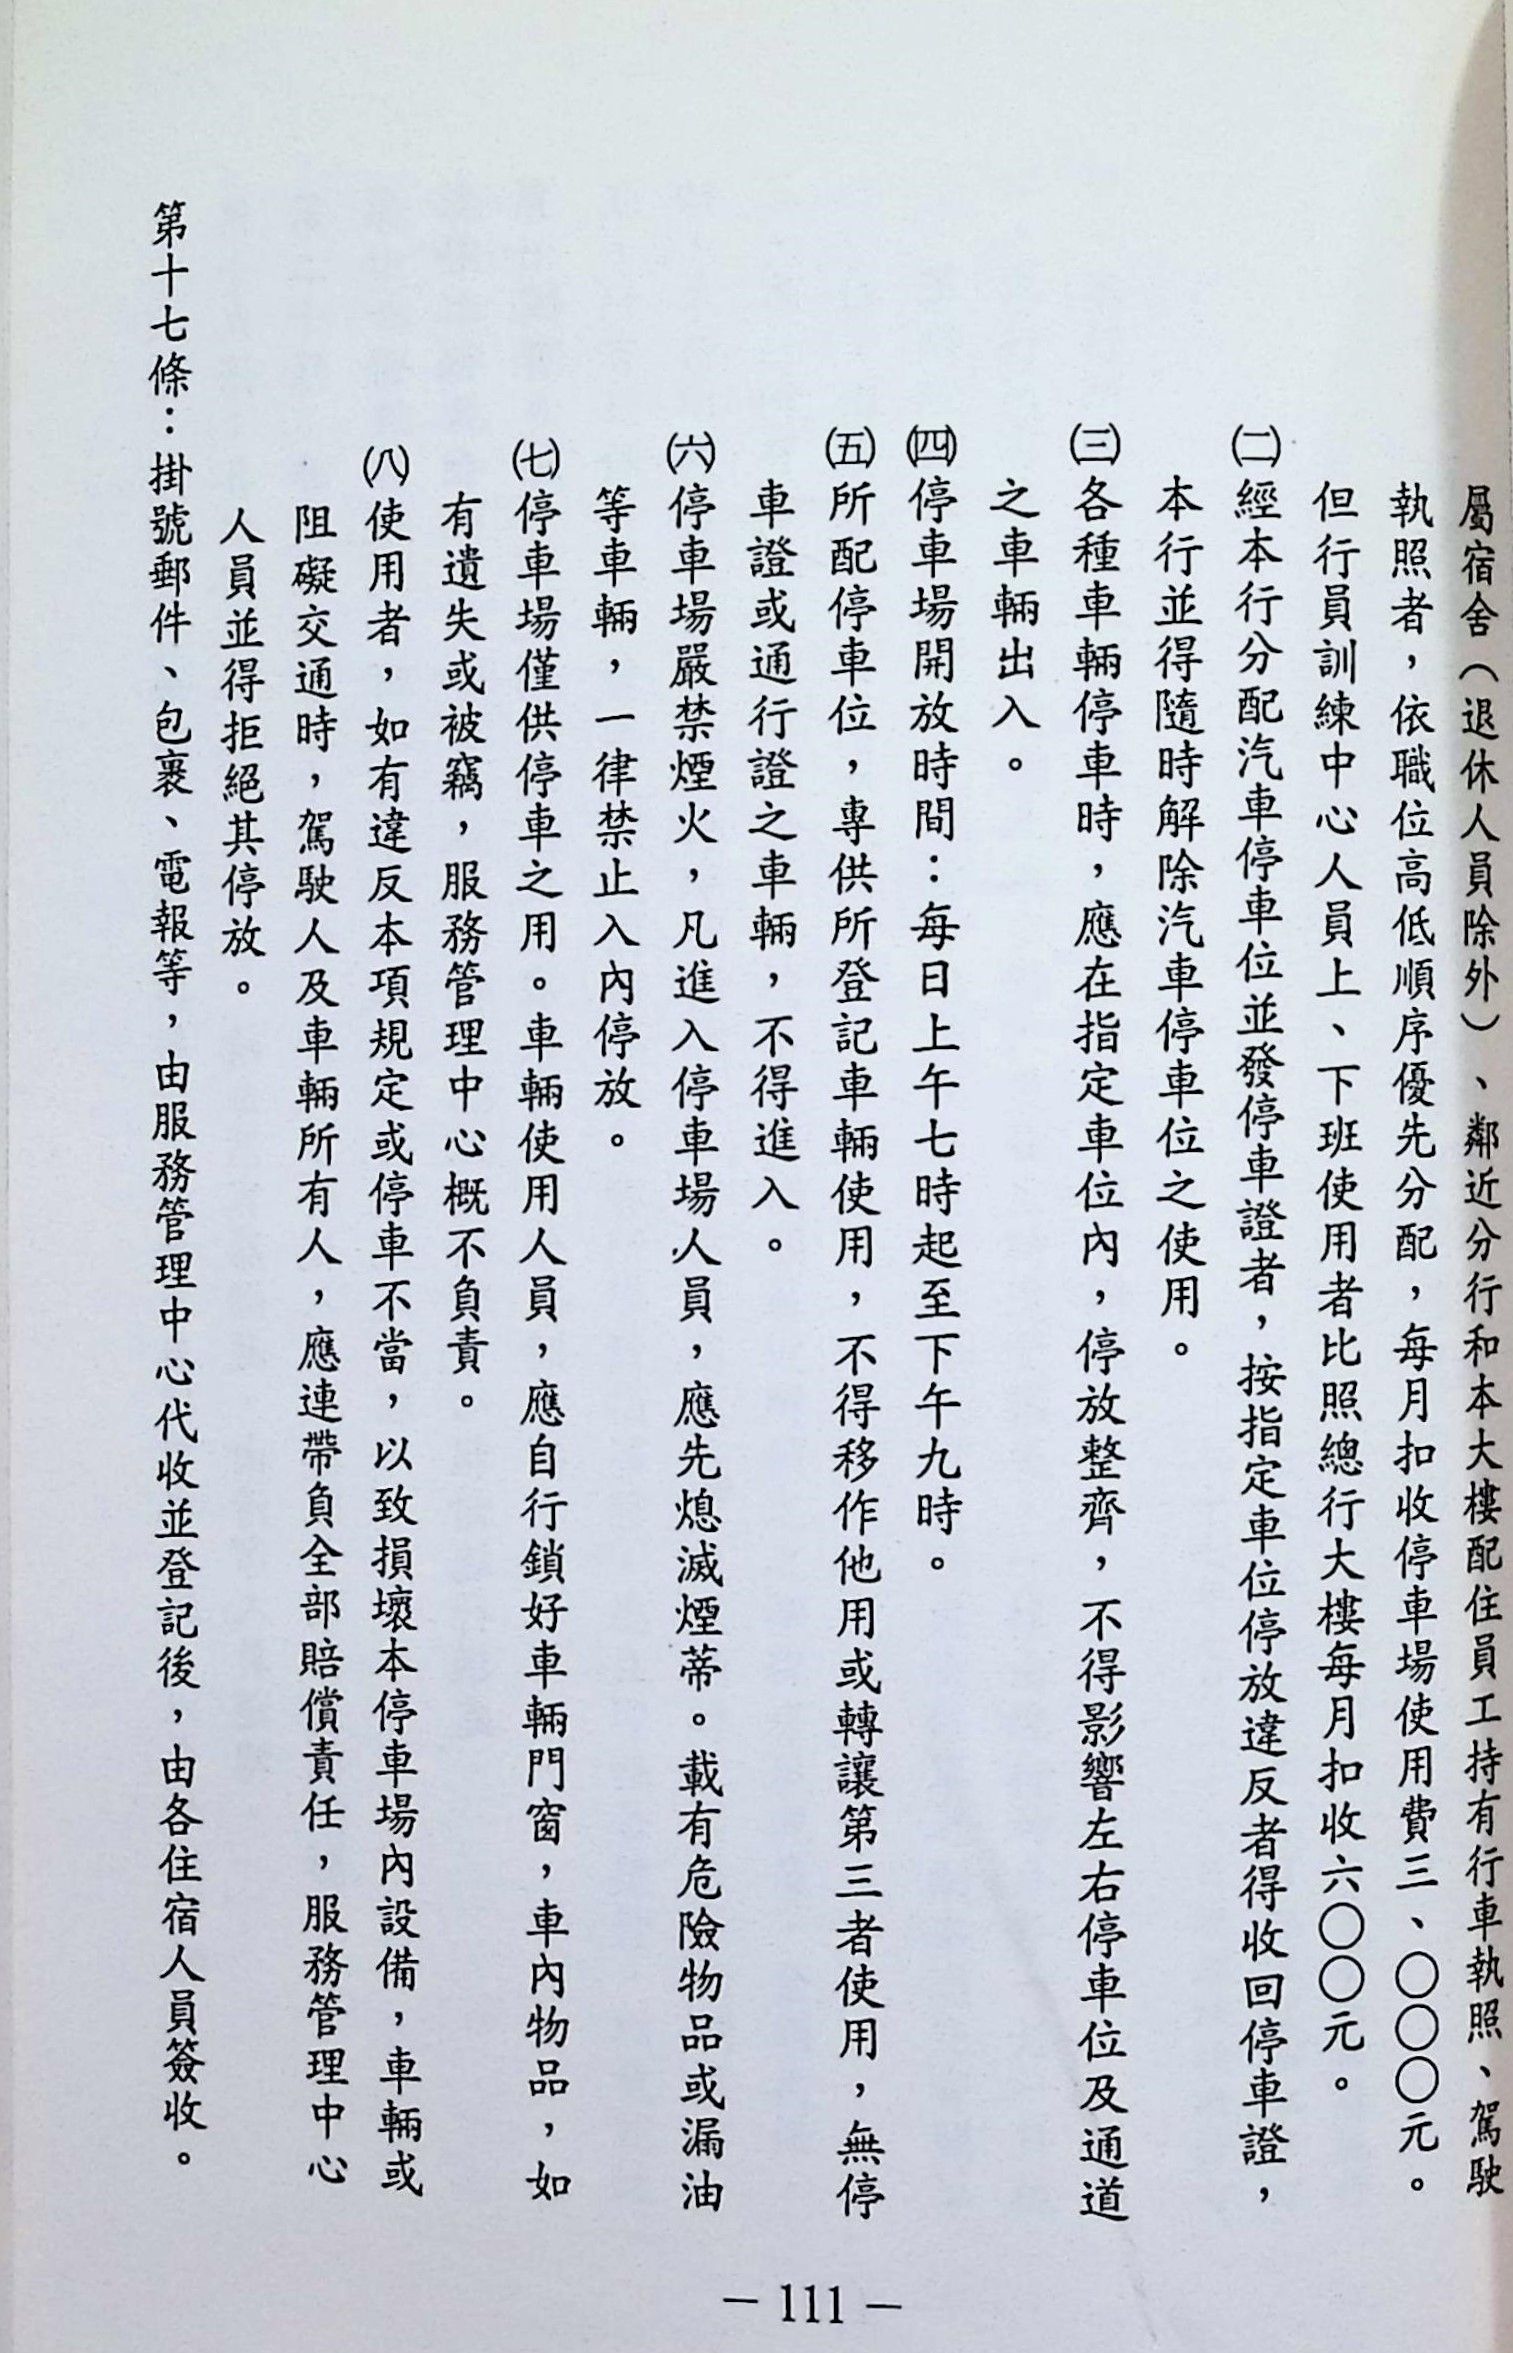 屬宿舍（退休人員除外）、鄰近分行和本大樓配住員工持有行車執照、駕駛
執照者，依職位高低順序優先分配，每月扣收停車場使用費三、〇〇〇元。
但行員訓練中心人員上、下班使用者比照總行大樓每月扣收六〇〇元。
㈡經本行分配汽車停車位並發停車證者，按指定車位停放違反者得收回停車證，
本行並得隨時解除汽車停車位之使用。
㈢各種車輛停車時，應在指定車位內，停放整齊，不得影響左右停車位及通道
之車輛出入。
㈣停車場開放時間：每日上午七時起至下午九時。
㈤所配停車位，專供所登記車輛使用，不得移作他用或轉讓第三者使用，無停
車證或通行證之車輛，不得進入。
㈥停車場嚴禁煙火，凡進入停車場人員，應先熄滅煙蒂。載有危險物品或漏油
等車輛，一律禁止入內停放。
㈦停車場僅供停車之用。車輛使用人員，應自行鎖好車輛門窗，車內物品，如
有遺失或被竊，服務管理中心概不負責。
㈧使用者，如有違反本項規定或停車不當，以致損壞本停車場內設備，車輛或
阻礙交通時，駕駛人及車輛所有人，應連帶負全部賠償責任，服務管理中心
人員並得拒絕其停放。
第十七條：掛號郵件、包裹、電報等，由服務管理中心代收並登記後，由各住宿人員簽收。
－111－